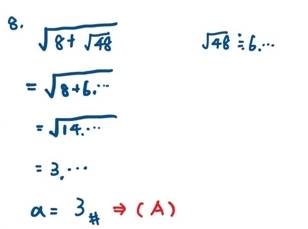 8.
√(8+√48)    √48 ≒ 6.⋯
= √(8+6.⋯)
= √(14.⋯)
= 3.⋯
a = 3 # ⇒ (A)